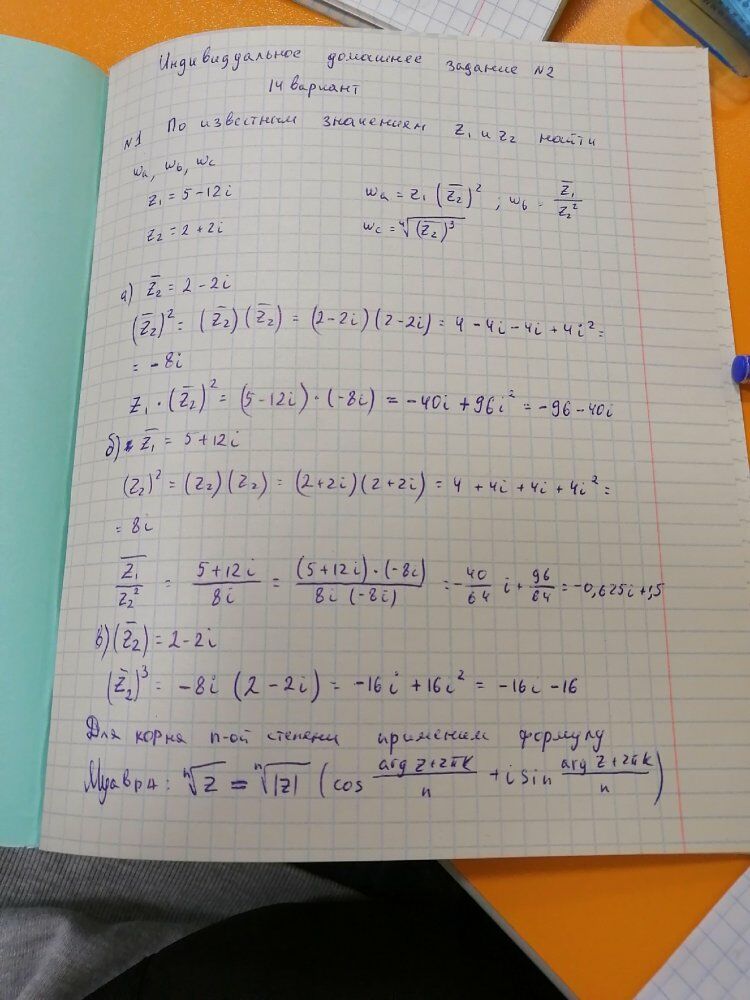 Индивидуальное домашнее задание №2
14 вариант
№1 По известным значениям z₁ и z₂ найти
wₐ, w_b, w_c
z₁ = 5 - 12i wₐ = z₁ (z̅₂)², w_b = z̅₁/z₂²
z₂ = 2 + 2i w_c = ⁴√(z̅₂)³
а) z̅₂ = 2 - 2i
(z̅₂)² = (z̅₂)(z̅₂) = (2-2i)(2-2i) = 4 - 4i - 4i + 4i² =
= -8i
z₁ · (z̅₂)² = (5-12i)·(-8i) = -40i + 96i² = -96 - 40i
б) z̅₁ = 5 + 12i
(z₂)² = (z₂)(z₂) = (2+2i)(2+2i) = 4 + 4i + 4i + 4i² =
= 8i
z̅₁/z₂² = (5+12i)/(8i) = ((5+12i)·(-8i))/(8i(-8i)) = -40/64 i + 96/64 = -0,625i + 1,5
в) (z̅₂) = 2 - 2i
(z̅₂)³ = -8i (2 - 2i) = -16i + 16i² = -16i - 16
Для корня n-ой степени применим формулу
Муавра: ⁿ√z = ⁿ√|z| (cos (arg z + 2πk)/n + i sin (arg z + 2πk)/n)